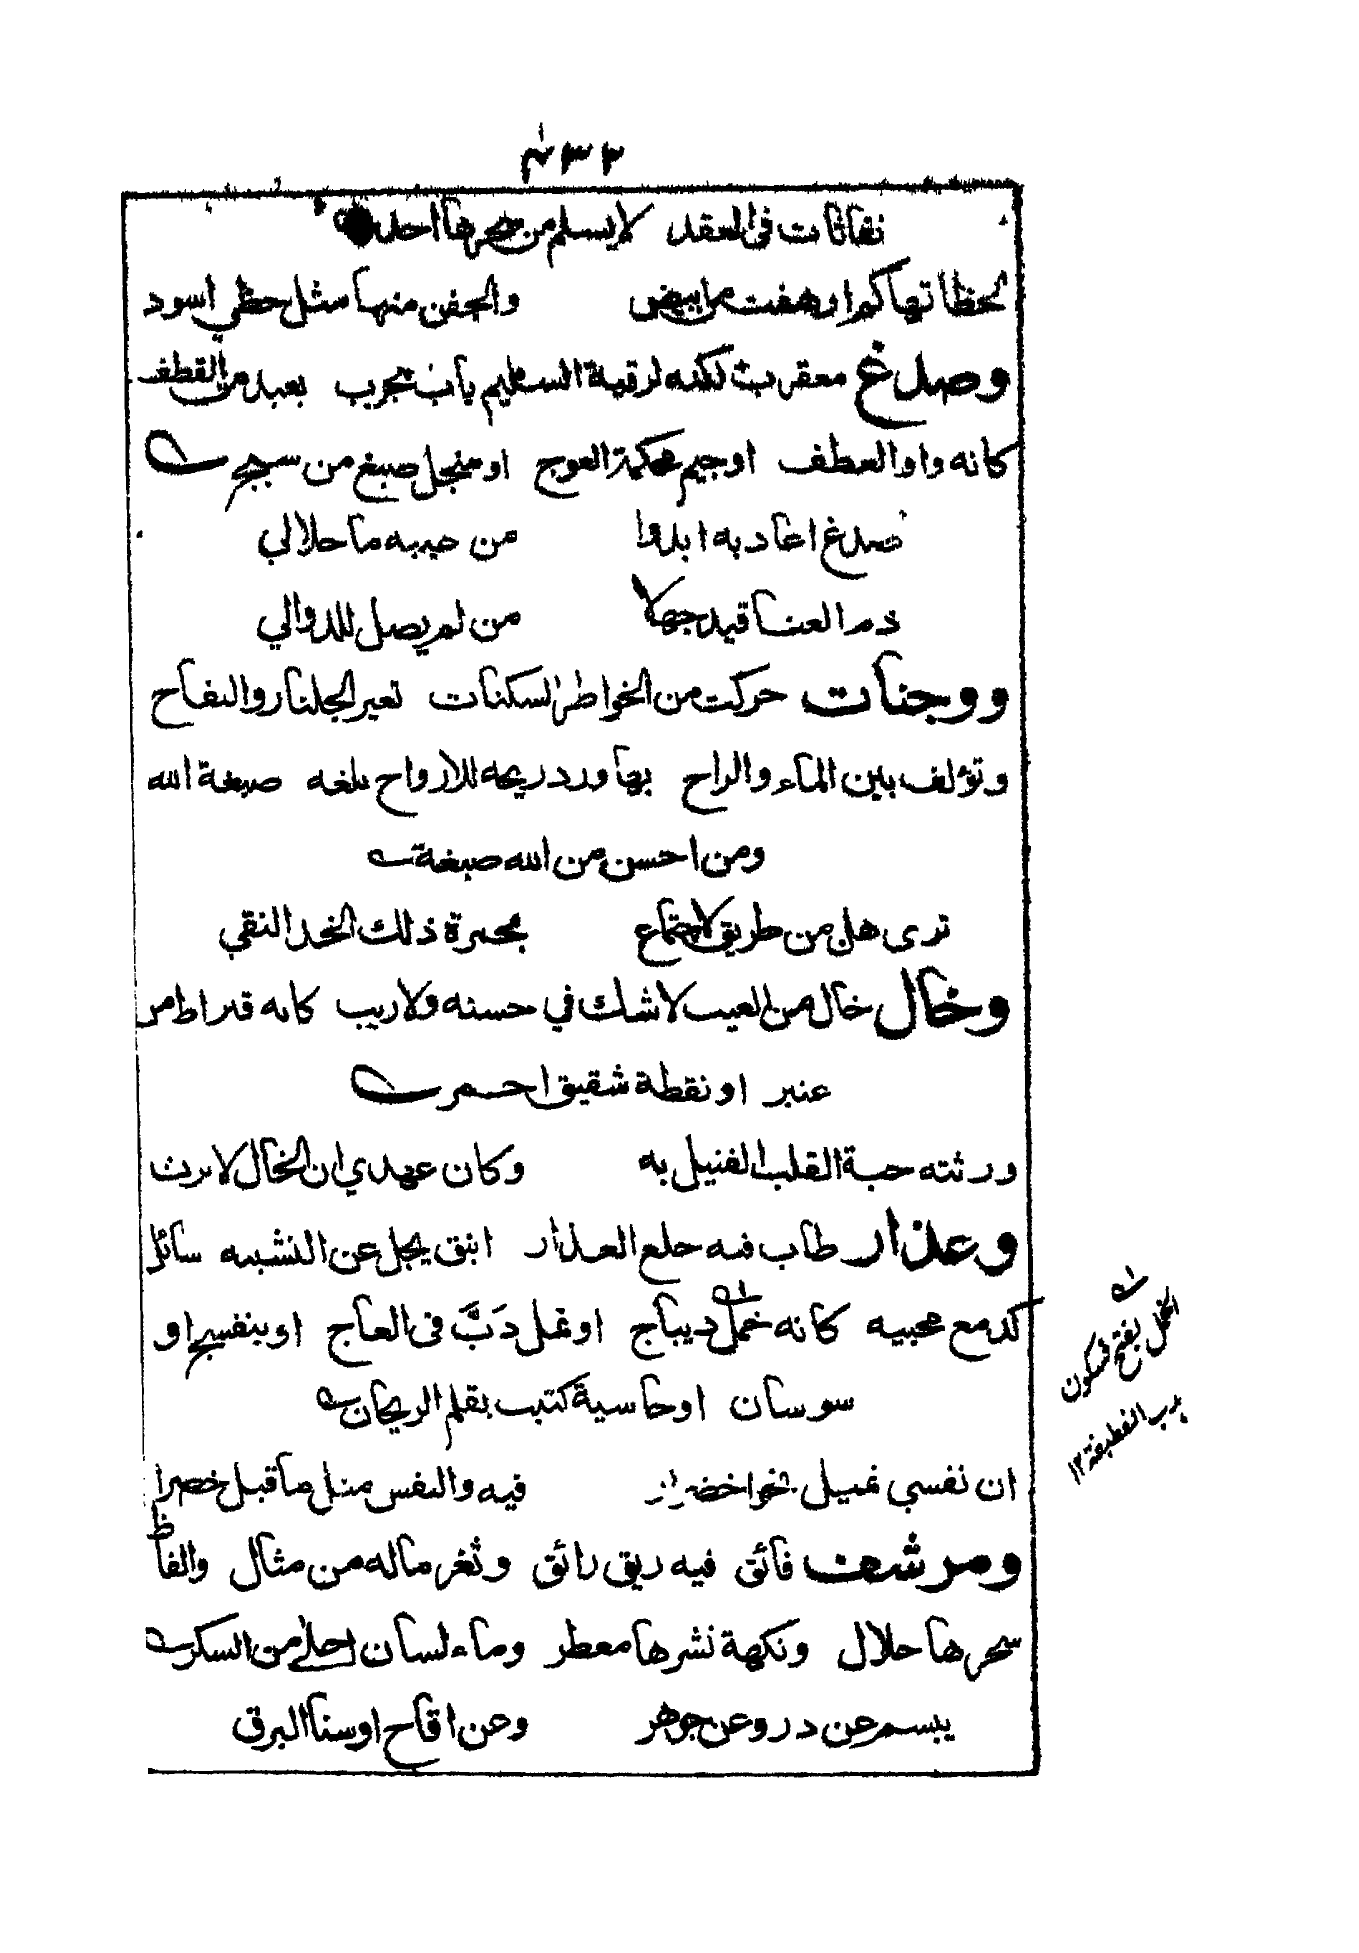 نفاثات في العقد لا يسلم من سحرها احد
لحظاتها كم اوهفت من ابيض والجفن منها مثل حظي اسود
وصدغ معقرب لكنه لرقية السليم يا من يجرب بعيد من القطف
كانه واو العطف او جيم محكمة العوج او منجل صيغ من سبج
صدغ اعاد به ابدوا من حبيبه ما حلالي
ذم العناقيد جهلا من لم يصل للدوالي
ووجنات حركت من الخواطر السكنات تعير الجلنار والتفاح
وتؤلف بين الماء والراح بها ورد ريحه للارواح بلغه صبغة الله
ومن احسن من الله صبغة
ترى هل من طريق لاجتماع بجمرة ذلك الخد النقي
وخال خال من العيب لا شك في حسنه ولا ريب كانه قيراط من
عنبر او نقطة شقيق احمر
ورثته حبة القلب القتيل به وكان عهدي ان الخال لا يرث
وعذار طاب فيه خلع العذار انيق يجل عن التشبيه سائل
كدمع محبيه كانه خمل ديباج او نمل دَبَّ في العاج او بنفسج او
سوسان او حاشية كتبت بقلم الريحان
ان نفسي تميل نحو اخضرار فيه والنفس مثل ما قيل خضرا
ومرشف فائق فيه ريق رائق وثغر ماله من مثال والفاظ
سحرها حلال ونكهة نشرها معطر وماء لسان احلى من السكر
يبسم عن در وعن جوهر وعن اقاح او سنا البرق
الخمل بفتح فسكون
هدب القطيفة ١٢